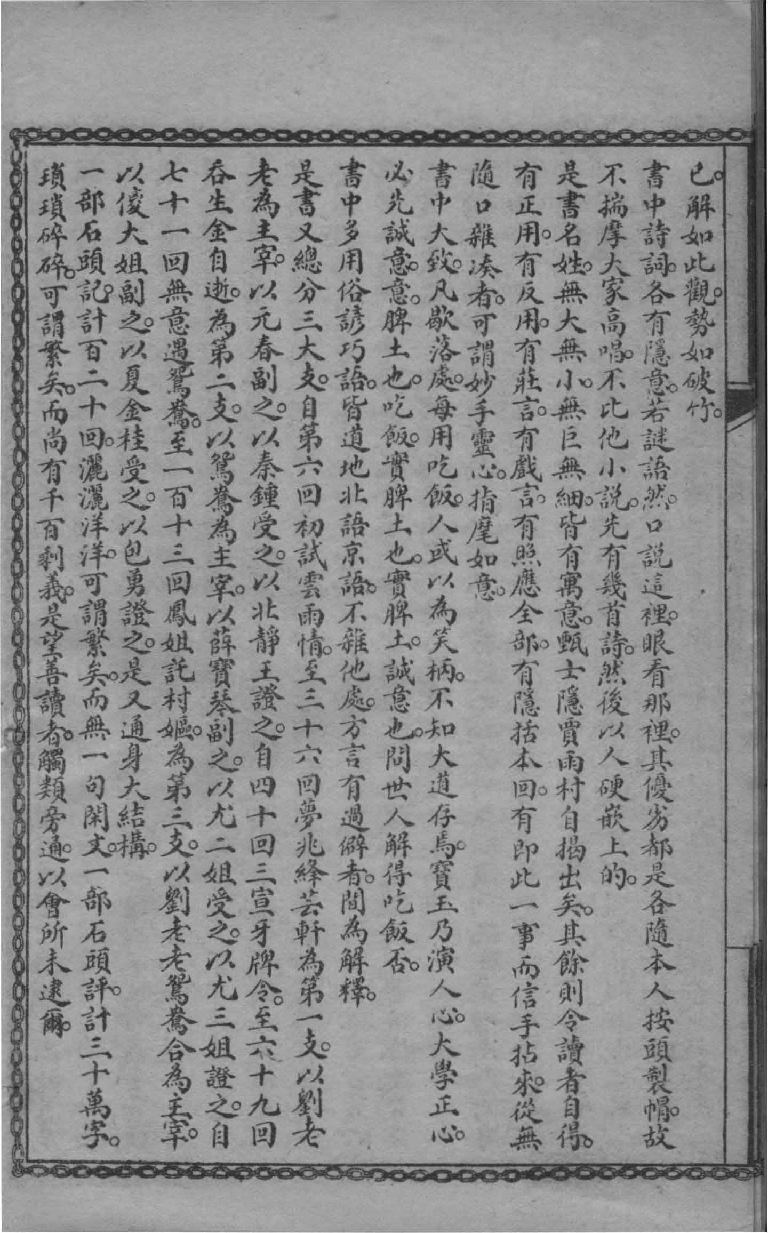 已。解如此觀。勢如破竹。
書中詩詞。各有隱意。若謎語然。口說這裡。眼看那裡。其優劣都是各隨本人按頭製帽。故
不揣摩大家高唱。不比他小說。先有幾首詩。然後以人硬嵌上的。
是書名姓。無大無小。無巨無細。皆有寓意。甄士隱賈雨村自揭出矣。其餘則令讀者自得。
有正用。有反用。有莊言。有戲言。有照應全部。有隱括本回。有即此一事而信手拈來。從無
隨口雜湊者。可謂妙手靈心。指麾如意。
書中大致。凡歇落處。每用吃飯。人或以為笑柄。不知大道存焉。寶玉乃演人心。大學正心。
必先誠意。意。脾土也。吃飯。實脾土也。實脾土。誠意也。問世人解得吃飯否。
書中多用俗諺巧語。皆道地北語京語。不雜他處。方言有過僻者。間為解釋。
是書又總分三大支。自第六回初試雲雨情。至三十六回夢兆絳芸軒為第一支。以劉老
老為主宰。以元春副之。以秦鍾受之。以北靜王證之。自四十回三宣牙牌令。至六十九回
吞生金自逝。為第二支。以鴛鴦為主宰。以薛寶琴副之。以尤二姐受之。以尤三姐證之。自
七十一回無意遇鴛鴦。至一百十三回鳳姐託村嫗。為第三支。以劉老老鴛鴦合為主宰。
以傻大姐副之。以夏金桂受之。以包勇證之。是又通身大結構。
一部石頭記。計百二十回。灑灑洋洋。可謂繁矣。而無一句閑文。一部石頭評。計三十萬字。
瑣瑣碎碎。可謂繁矣。而尚有千百剩義。是望善讀者。觸類旁通。以會所未逮爾。